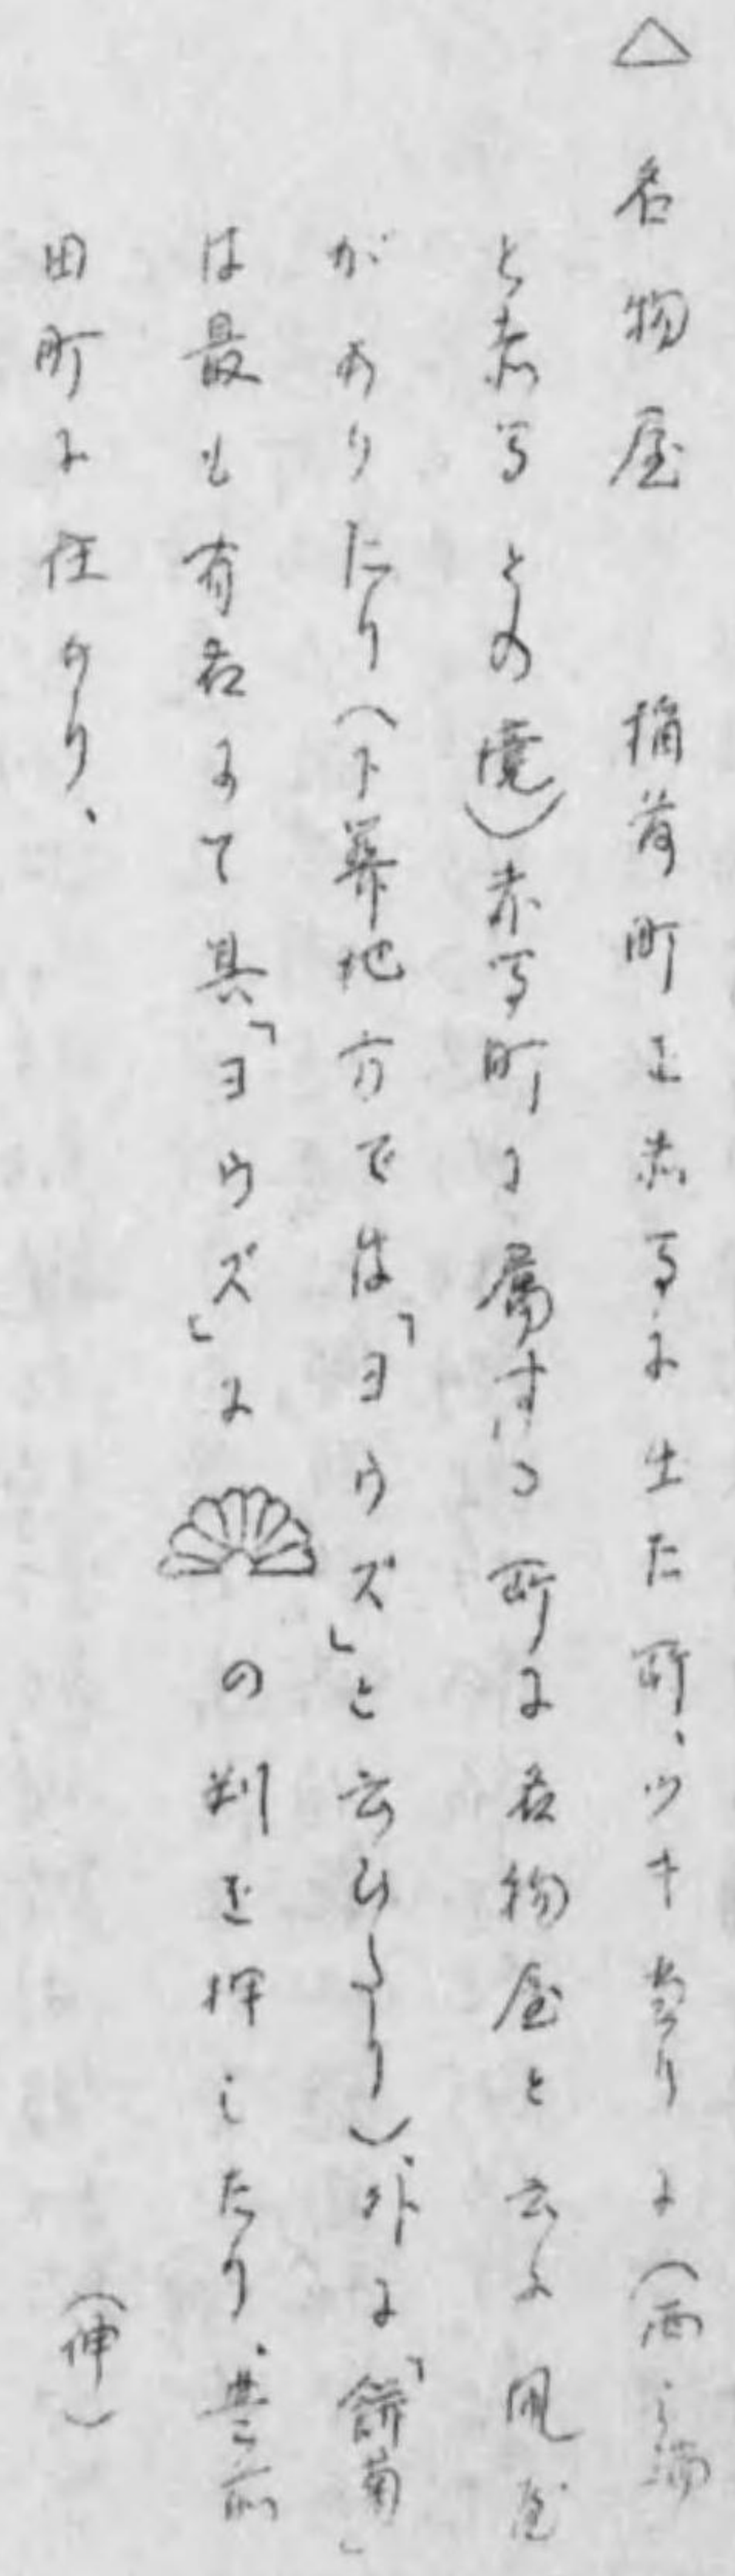 △ 名物屋 稲荷町を赤間に出た所、ツキ当りに(西之端
と赤間との境)赤間町に属する所に名物屋と云ふ凧屋
がありたり(下関地方では「ヨウズ」と云ひたり)、外に「餅菊」
は最も有名にて其「ヨウズ」に の判を押したり、豊前
田町に住めり、
(伸)